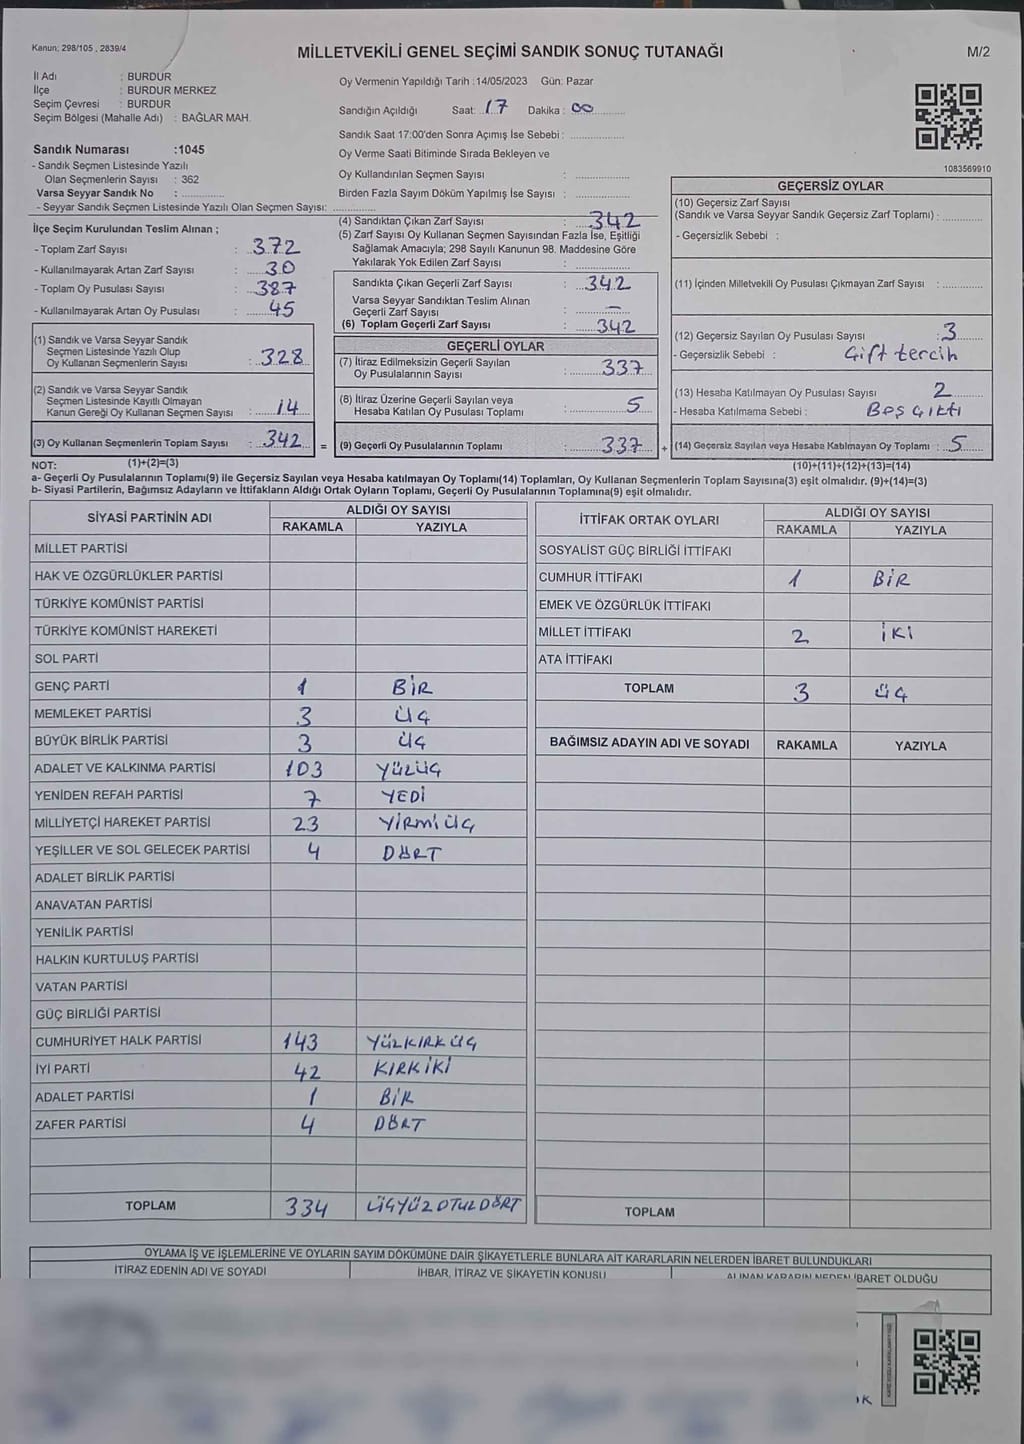 Kanun; 298/105 , 2839/4
MİLLETVEKİLİ GENEL SEÇİMİ SANDIK SONUÇ TUTANAĞI
M/2
İl Adı : BURDUR
İlçe : BURDUR MERKEZ
Seçim Çevresi : BURDUR
Seçim Bölgesi (Mahalle Adı) : BAĞLAR MAH.
Sandık Numarası :1045
- Sandık Seçmen Listesinde Yazılı
Olan Seçmenlerin Sayısı : 362
Varsa Seyyar Sandık No :
- Seyyar Sandık Seçmen Listesinde Yazılı Olan Seçmen Sayısı:
İlçe Seçim Kurulundan Teslim Alınan ;
- Toplam Zarf Sayısı : 372
- Kullanılmayarak Artan Zarf Sayısı : 30
- Toplam Oy Pusulası Sayısı : 387
- Kullanılmayarak Artan Oy Pusulası : 45
(1) Sandık ve Varsa Seyyar Sandık
Seçmen Listesinde Yazılı Olup
Oy Kullanan Seçmenlerin Sayısı : 328
(2) Sandık ve Varsa Seyyar Sandık
Seçmen Listesinde Kayıtlı Olmayan
Kanun Gereği Oy Kullanan Seçmen Sayısı : 14
(3) Oy Kullanan Seçmenlerin Toplam Sayısı : 342 =
(1)+(2)=(3)
Oy Vermenin Yapıldığı Tarih :14/05/2023 Gün: Pazar
Sandığın Açıldığı Saat: 17 Dakika : 00
Sandık Saat 17:00'den Sonra Açımış İse Sebebi :
Oy Verme Saati Bitiminde Sırada Bekleyen ve
Oy Kullandırılan Seçmen Sayısı :
Birden Fazla Sayım Döküm Yapılmış İse Sayısı :
(4) Sandıktan Çıkan Zarf Sayısı : 342
(5) Zarf Sayısı Oy Kullanan Seçmen Sayısından Fazla İse, Eşitliği
Sağlamak Amacıyla; 298 Sayılı Kanunun 98. Maddesine Göre
Yakılarak Yok Edilen Zarf Sayısı :
Sandıkta Çıkan Geçerli Zarf Sayısı : 342
Varsa Seyyar Sandıktan Teslim Alınan
Geçerli Zarf Sayısı : —
(6) Toplam Geçerli Zarf Sayısı : 342
GEÇERLİ OYLAR
(7) İtiraz Edilmeksizin Geçerli Sayılan
Oy Pusulalarının Sayısı : 337
(8) İtiraz Üzerine Geçerli Sayılan veya
Hesaba Katılan Oy Pusulası Toplamı : 5
(9) Geçerli Oy Pusulalarının Toplamı : 337 +
1083569910
GEÇERSİZ OYLAR
(10) Geçersiz Zarf Sayısı
(Sandık ve Varsa Seyyar Sandık Geçersiz Zarf Toplamı) :
- Geçersizlik Sebebi :
(11) İçinden Milletvekili Oy Pusulası Çıkmayan Zarf Sayısı :
(12) Geçersiz Sayılan Oy Pusulası Sayısı : 3
- Geçersizlik Sebebi : Çift tercih
(13) Hesaba Katılmayan Oy Pusulası Sayısı 2
- Hesaba Katılmama Sebebi : Boş çıktı
(14) Geçersiz Sayılan veya Hesaba Katılmayan Oy Toplamı : 5
(10)+(11)+(12)+(13)=(14)
NOT:
a- Geçerli Oy Pusulalarının Toplamı(9) ile Geçersiz Sayılan veya Hesaba katılmayan Oy Toplamı(14) Toplamları, Oy Kullanan Seçmenlerin Toplam Sayısına(3) eşit olmalıdır. (9)+(14)=(3)
b- Siyasi Partilerin, Bağımsız Adayların ve İttifakların Aldığı Ortak Oyların Toplamı, Geçerli Oy Pusulalarının Toplamına(9) eşit olmalıdır.
SİYASİ PARTİNİN ADI ALDIĞI OY SAYISI
RAKAMLA YAZIYLA
MİLLET PARTİSİ
HAK VE ÖZGÜRLÜKLER PARTİSİ
TÜRKİYE KOMÜNİST PARTİSİ
TÜRKİYE KOMÜNİST HAREKETİ
SOL PARTİ
GENÇ PARTİ 1 BİR
MEMLEKET PARTİSİ 3 ÜÇ
BÜYÜK BİRLİK PARTİSİ 3 ÜÇ
ADALET VE KALKINMA PARTİSİ 103 YÜZÜÇ
YENİDEN REFAH PARTİSİ 7 YEDİ
MİLLİYETÇİ HAREKET PARTİSİ 23 YİRMİ ÜÇ
YEŞİLLER VE SOL GELECEK PARTİSİ 4 DÖRT
ADALET BİRLİK PARTİSİ
ANAVATAN PARTİSİ
YENİLİK PARTİSİ
HALKIN KURTULUŞ PARTİSİ
VATAN PARTİSİ
GÜÇ BİRLİĞİ PARTİSİ
CUMHURİYET HALK PARTİSİ 143 YÜZKIRK ÜÇ
İYİ PARTİ 42 KIRK İKİ
ADALET PARTİSİ 1 BİR
ZAFER PARTİSİ 4 DÖRT
TOPLAM 334 ÜÇYÜZ OTUZ DÖRT
İTTİFAK ORTAK OYLARI ALDIĞI OY SAYISI
RAKAMLA YAZIYLA
SOSYALİST GÜÇ BİRLİĞİ İTTİFAKI
CUMHUR İTTİFAKI 1 BİR
EMEK VE ÖZGÜRLÜK İTTİFAKI
MİLLET İTTİFAKI 2 İKİ
ATA İTTİFAKI
TOPLAM 3 ÜÇ
BAĞIMSIZ ADAYIN ADI VE SOYADI RAKAMLA YAZIYLA
TOPLAM
OYLAMA İŞ VE İŞLEMLERİNE VE OYLARIN SAYIM DÖKÜMÜNE DAİR ŞİKAYETLERLE BUNLARA AİT KARARLARIN NELERDEN İBARET BULUNDUKLARI
İTİRAZ EDENİN ADI VE SOYADI İHBAR, İTİRAZ VE ŞİKAYETİN KONUSU ALINAN KARARIN NEDEN İBARET OLDUĞU